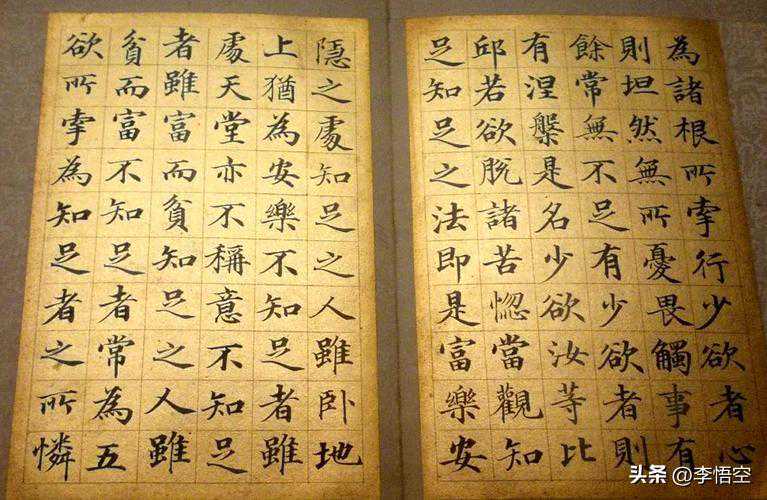 為諸根所牽行少欲者心
則坦然無所憂畏觸事有
餘常無不足有少欲者則
有涅槃是名少欲汝等比
邱若欲脫諸苦惚當觀知
足知足之法即是富樂安
隱之處知足之人雖卧地
上猶為安樂不知足者雖
處天堂亦不稱意不知足
者雖富而貧知足之人雖
貧而富不知足者常為五
欲所牽為知足者之所憐
头条 @李悟空